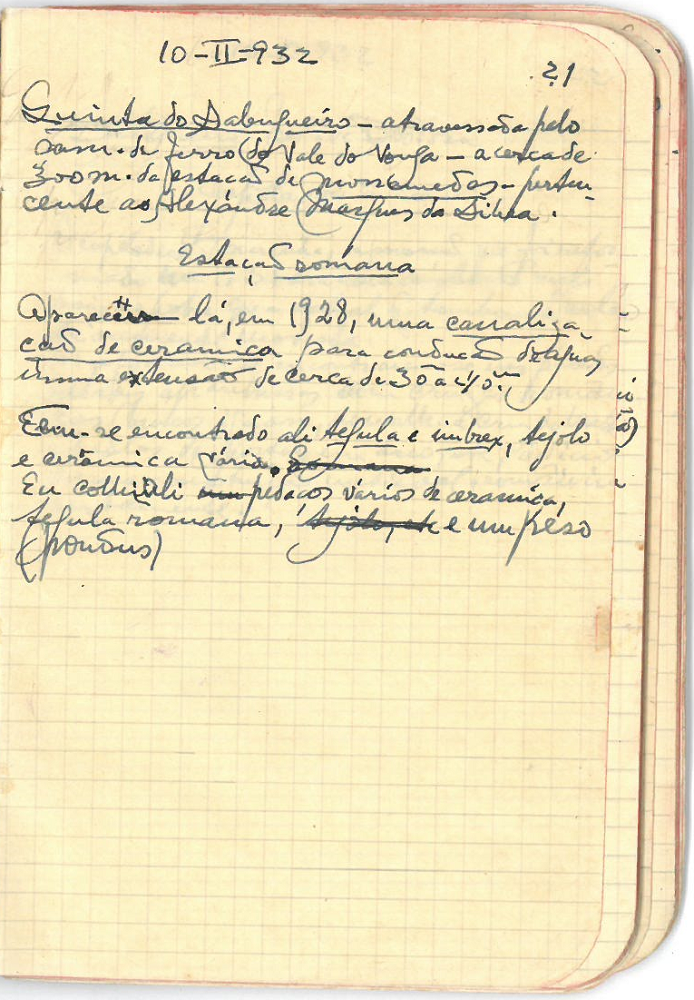 10-II-932
21
Quinta do Sabugueiro - atravessada pelo
cam. de ferro do Vale do Vouga - a cerca de
300m. da estação de Mossamedes - perten-
cente ao Alexandre Marques da Silva.
Estação romana
Apareceu lá, em 1928, uma canaliza-
ção de ceramica para condução de agua,
numa extensão de cerca de 30 a 40m.
Tem-se encontrado ali tegula e imbrex, tejolo
e cerâmica vária. Romana
Eu colhi ali um pedaços vários de ceramica,
tegula romana, tejolo, etc e um peso
(pondus)